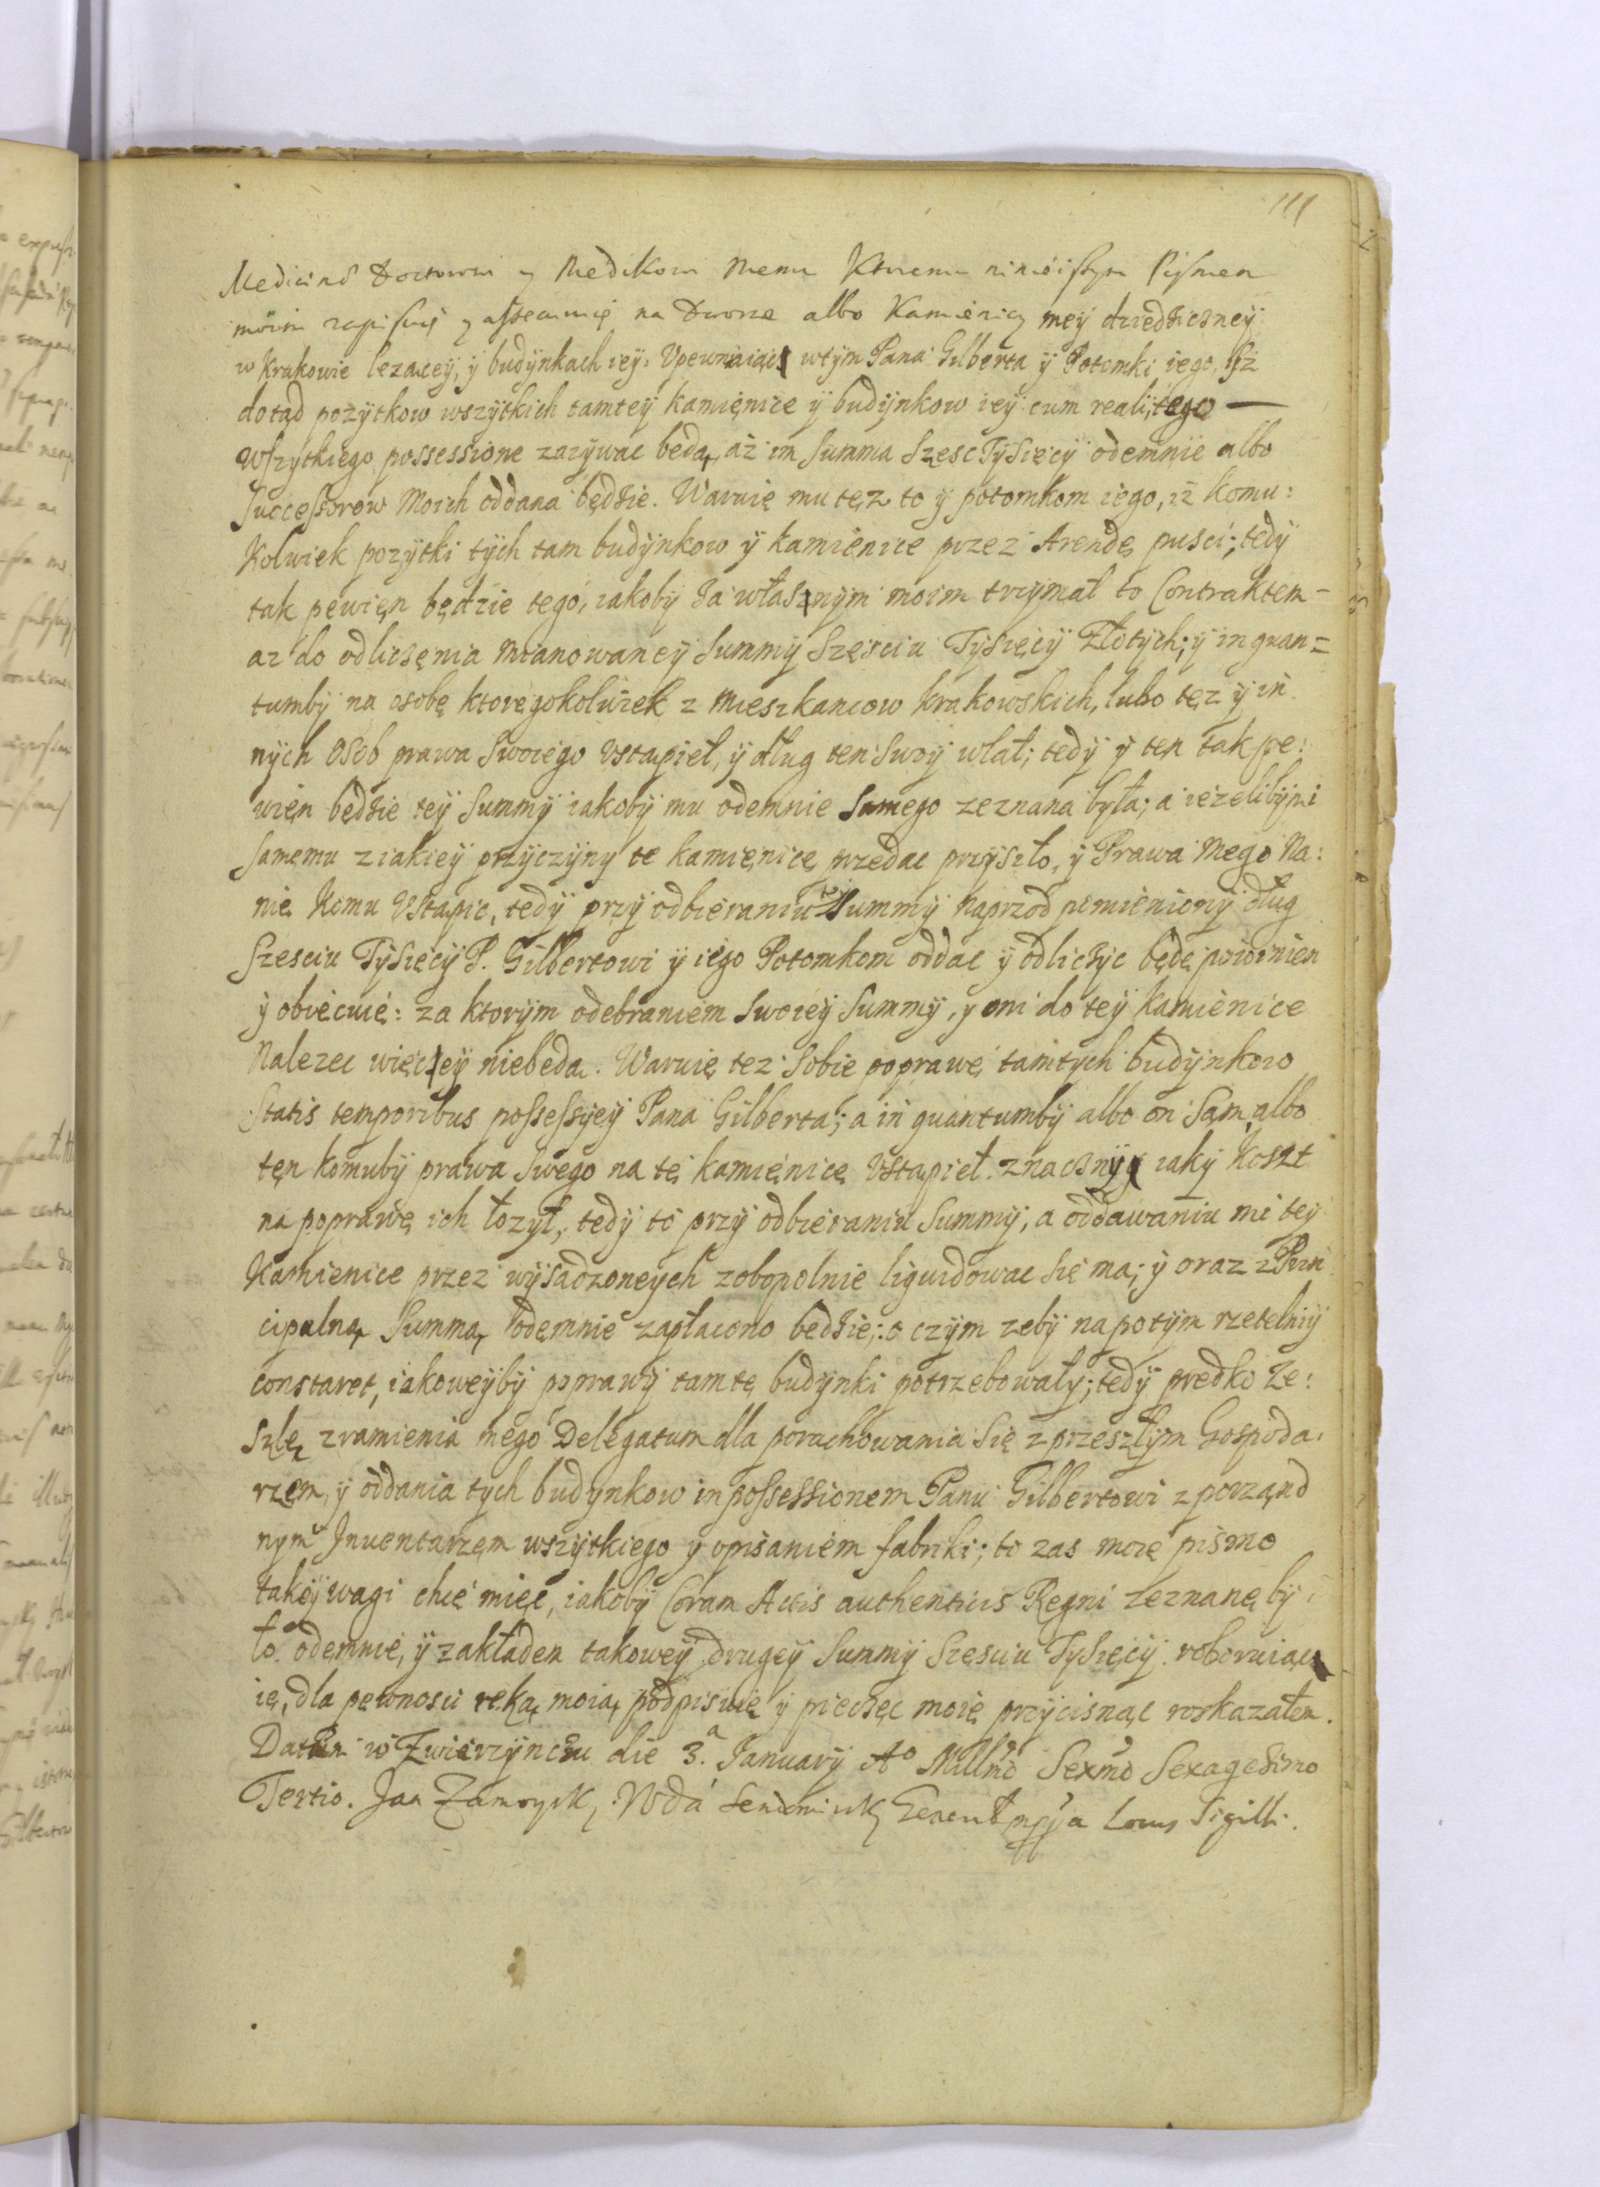 111
Medicinae Doctowi y Medikowi memu Ktoremu ninieiszym Pismem
moim zapisuię y assecuruię na Dworze albo Kamienicy mey dziedziczney
w Krakowie lezacey, y budynkach iey. Vpewniaiąc wtym Pana Gilberta y Potomki iego, Isz
dotąd pożytkow wszytkich tamtey kamięnice y budynkow iey cum reali, tego
wszytkiego possessione zazywac beda, aż im Summa Szesc Tysięcy odemnie albo
Successorow Moich oddana będzie. Waruię mu tęz to y potomkom iego, iż komu:
kolwiek pozytki tych tam budynkow y kamienice przez Arendę pusci; tedy
tak pewięn będzie tego, iakoby Ia własznym moim trzymał to Contraktem
az do odliczęnia mianowaney Summy Szęsciu Tysięcy Złotych; y in quan=
tumby na osobę ktoregokolwiek z mieszkancow krakowskich, lubo tęz y in
nych osob prawa Swoiego Vstapieł, y dług ten Swoy wlał; tedy y ten tak pe:
wien będzie tey Summy iakoby mu odemnie Samego zeznana była; a iezeliby mi
Samemu z iakiey przyczyny te kamięnicę przedac przyszło, y Prawa mego Na:
nię komu Vstapic, tedy przy odbieraniu tey Summy naprzod pomieniony dług
Szesciu Tysięcy P. Gilbertowi y iego Potomkom oddac y odliczyc będę powinien
y obiecuię: za ktorym odebraniem Swoiey Summy, y oni do tey kamienice
Nalezec więcey niebeda. Waruię tez Sobie poprawę tamtych budynkow
Statis temporibus possessyey Pana Gilberta; a in quantumby albo on Sam, albo
tęn komuby prawa Swego na tę kamięnicę Vstapieł znaczny iaky koszt
na poprawę ich łozył, tedy to przy odbieraniu Summy, a oddawaniu mi tey
Kamienice przez wysadzoneych zobopolnie liquidowac się ma; y oraz z Prin
cipalna Summa, odemnie zapłacono będzie; o czym zeby napotym rzetelniy
constaret, iakoweyby poprawy tamte budynki potrzebowały; tedy prędko Ze:
szlę z ramienia mego Delegatum dla porachowania Się z przeszłym Gospoda:
rzem, y oddania tych budynkow in possessionem Panu Gilbertowi z porząnd
nym Inuentarzęm wszytkiego y opisaniem fabriki; to zas moię pismo
takey wagi chcę mięc, iakoby Coram Actis authenticis Regni zeznanę by
ło odemnie, y zakładem takowey drugey Summy Szęsciu Tysięcy roboruiąc
ię, dla pewnosci ręką moią podpisuię y pieczęc moię przycisnąc roskazałem.
Datum w Zwierzyncu die 3.a Januarÿ Ao Millmo Sexmo Sexagesimo
Tertio. Jan Zamoysky, Wda Sendomirsky Generał mpp a Locus Sigilli.